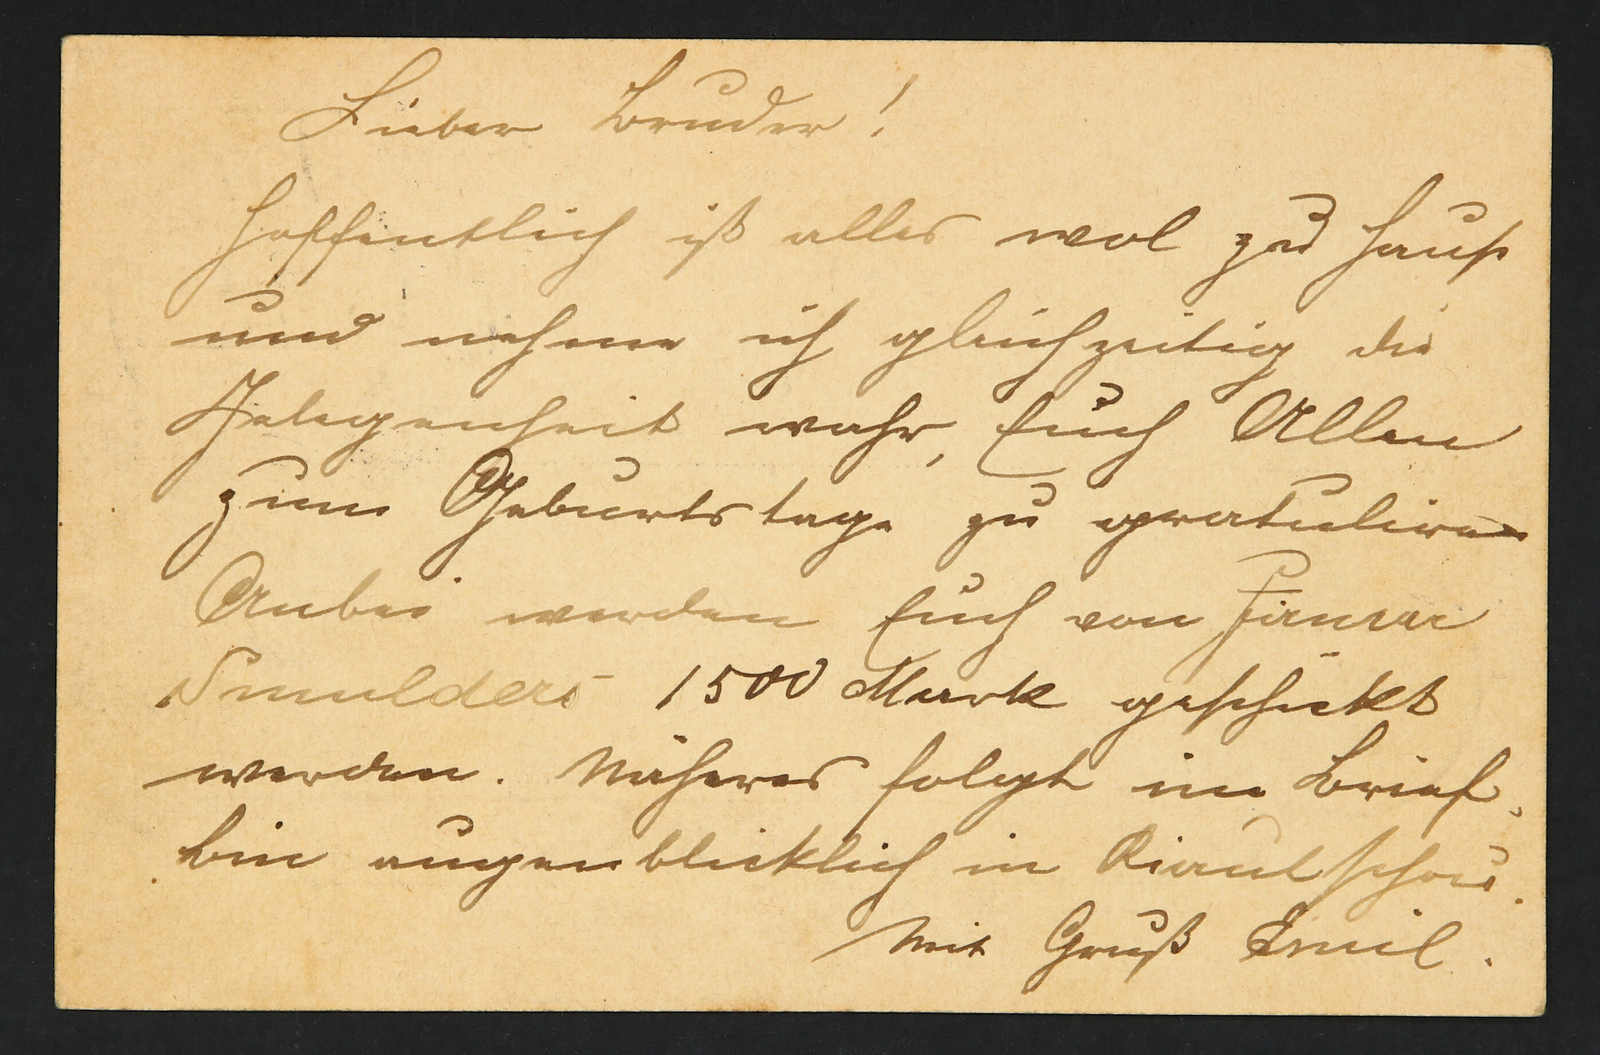 Lieber Bruder!
Hoffentlich ist alles wol zu Haus
und nehme ich gleichzeitig die
Gelegenheit wahr, Euch Allen
zum Geburtstage zu gratuliren
Anbei werden Euch von Firma
Smulders 1500 Mark geschickt
werden. Näheres folgt im Brief,
bin augenblicklich in Kiautschou.
Mit Gruß Emil.